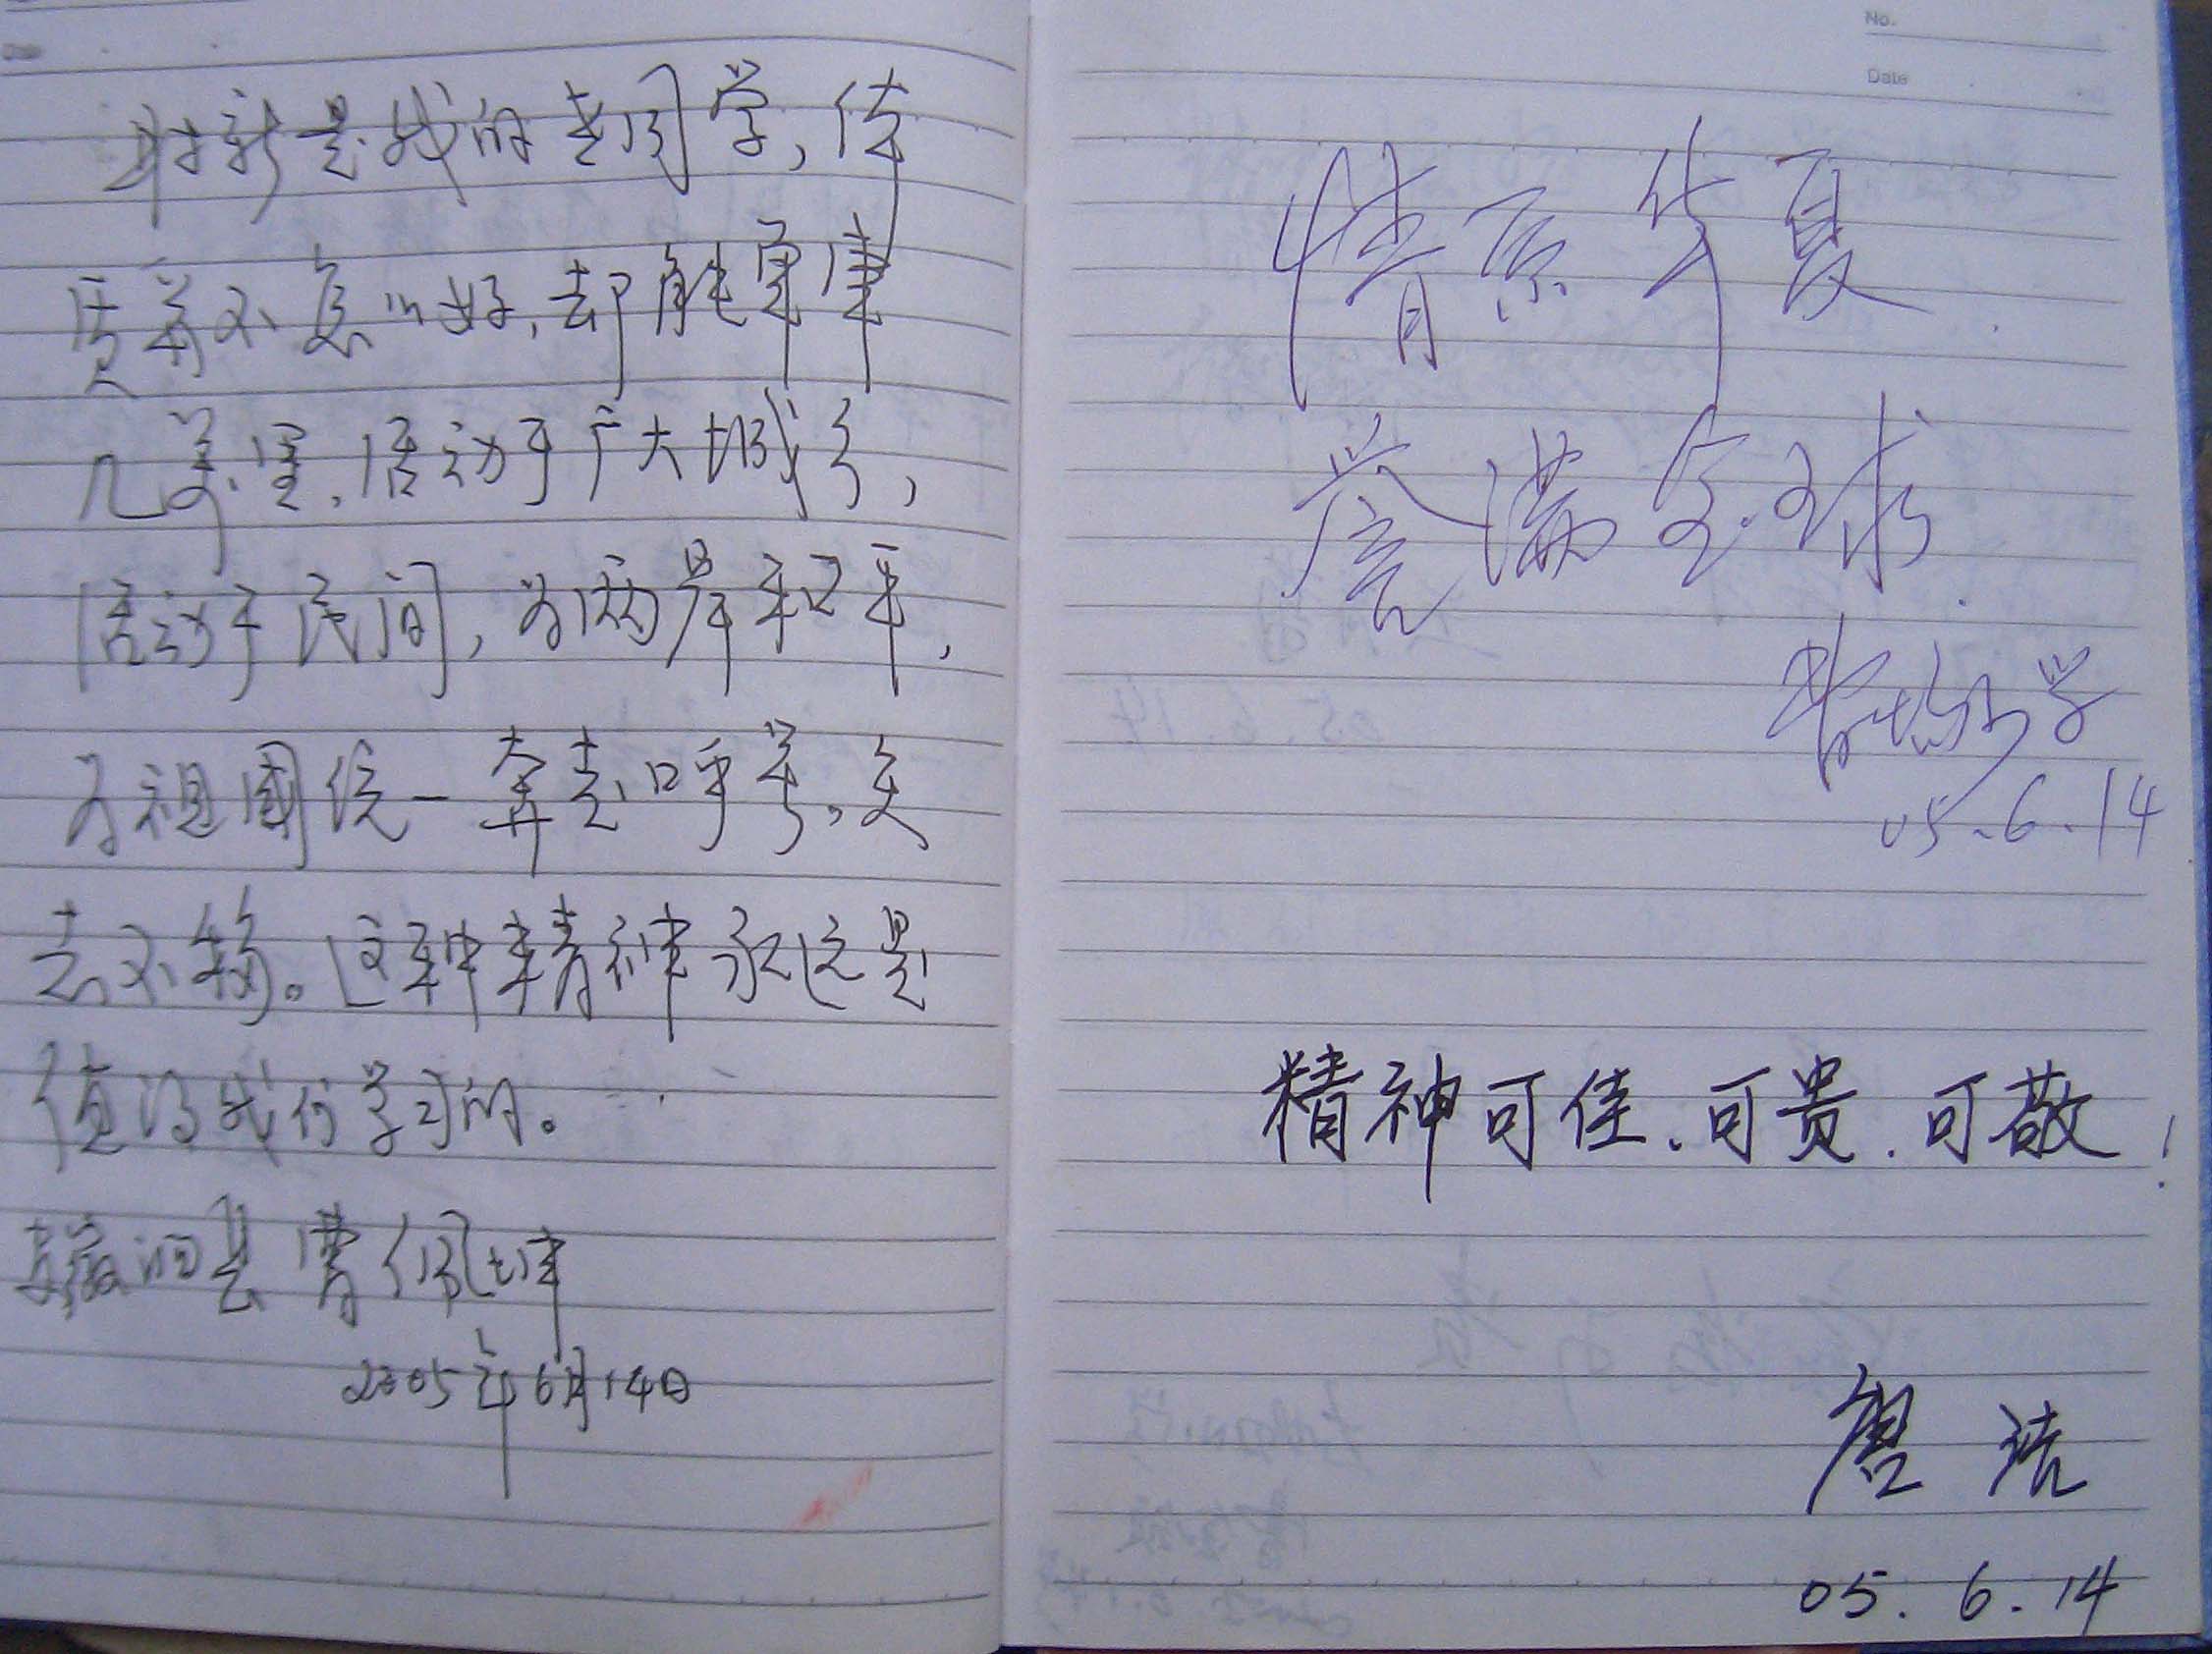 财新是我的老同学,体
质并不怎么好,却能单车
几万里,活动于广大城乡,
活动于民间,为两岸和平,
为祖国统一奔走呼号,矢
志不移。这种精神永远是
值得我们学习的。
曹佩
2005年6月14日
No.
Date
情系华夏
誉满全球
学
05.6.14
精神可佳、可贵、可敬!
詹浩
05.6.14